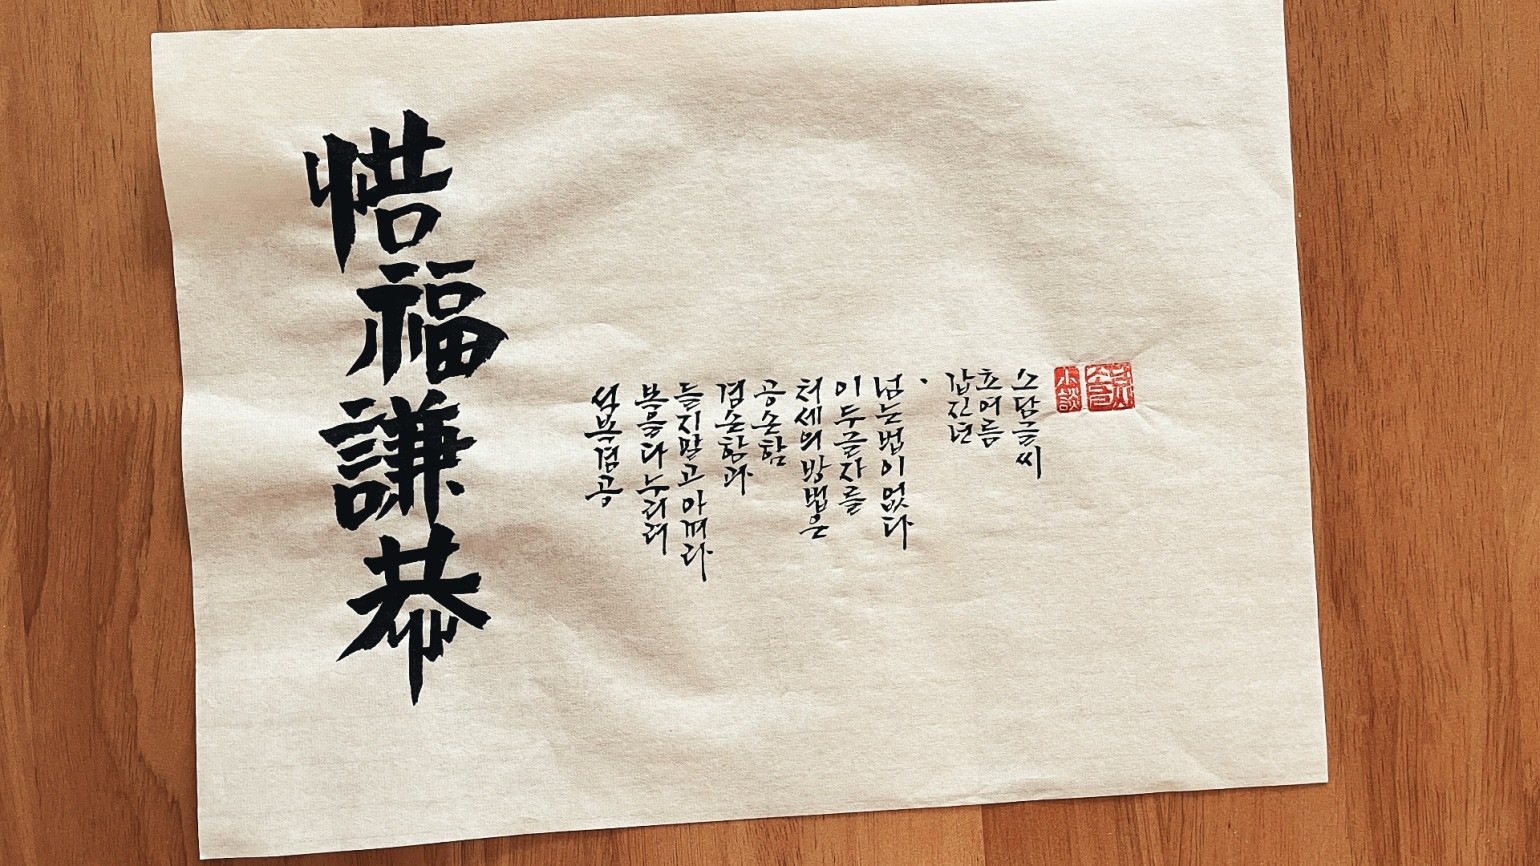 惜福謙恭
석복겸공
복을 다 누리려
들지 말고 아껴라
겸손함과
공손함
처세의 방법은
이 두 글자를
넘는 법이 없다
갑진년
초여름
소담글씨
小談